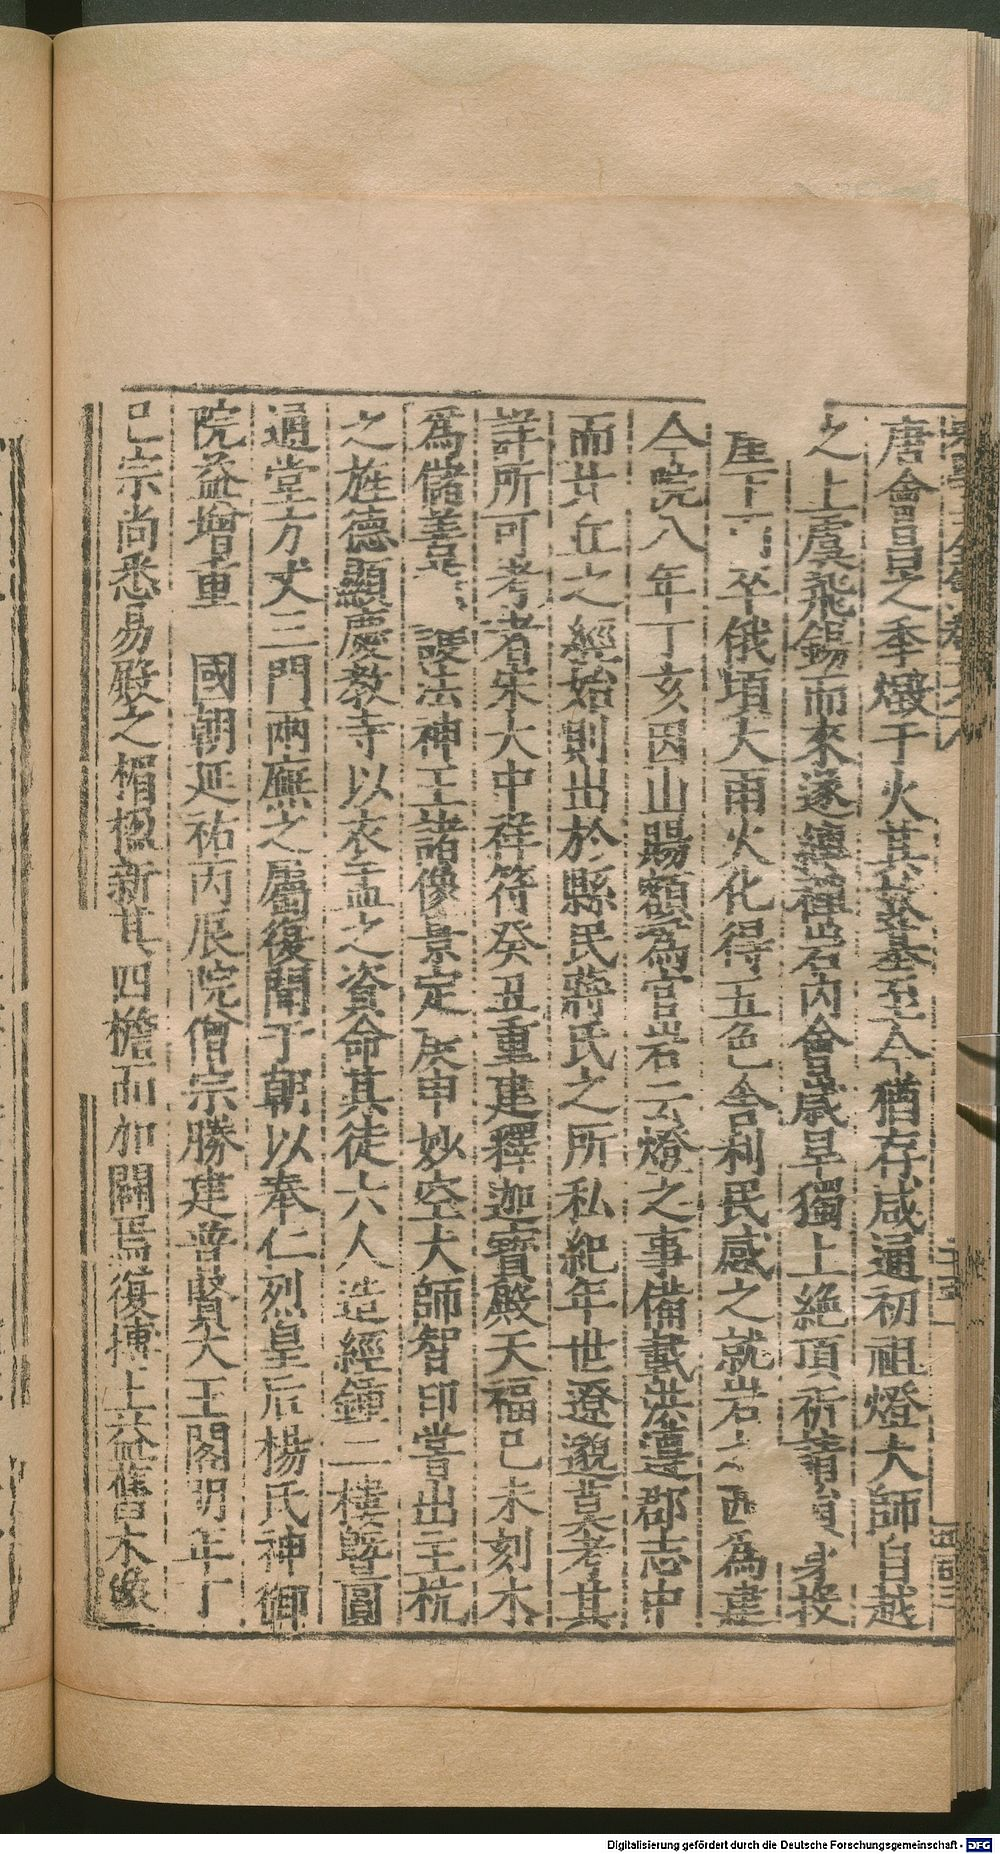 唐會昌之季燬于火其遺基至今猶存咸通初祖燈大師自越
之上虞飛錫而來遂縛禪岩内會歲旱獨上絶頂祈 身投
崖下 卒俄頃大雨火化得五色舍利民感之就岩之西爲建
今院八年丁亥因山賜額為官岩云燈之事備載洪遵郡志中
而廿丘之經始則出於縣民蔣氏之所私紀年世遼邈莫考其
詳所可考者宋大中祥符癸丑重建釋迦寳殿天福己未刻木
爲儲善 護法神王諸像景定庚申妙空大師智印嘗出主杭
之旌德顯慶教寺以衣盂之資命其徒六人造經鐘二樓暨圓
通堂方丈三門兩廡之屬復聞于朝以奉仁烈皇后楊氏神御
院益增重 國朝延祐丙辰院僧宗勝建普賢大王閣明年丁
巳宗尚悉易殿之楣楹新其四檐而加闢焉復摶土益舊木像
Digitalisierung gefördert durch die Deutsche Forschungsgemeinschaft - DFG